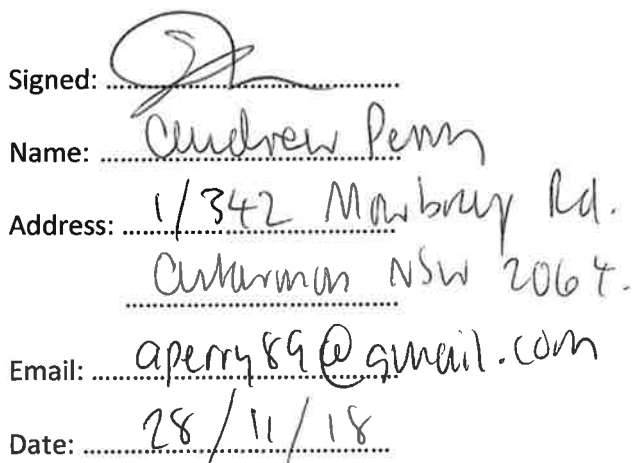 Signed:
Name: Andrew Perry
Address: 1/342 Mowbray Rd.
Artarmon NSW 2064.
Email: aperry89@gmail.com
Date: 28/11/18